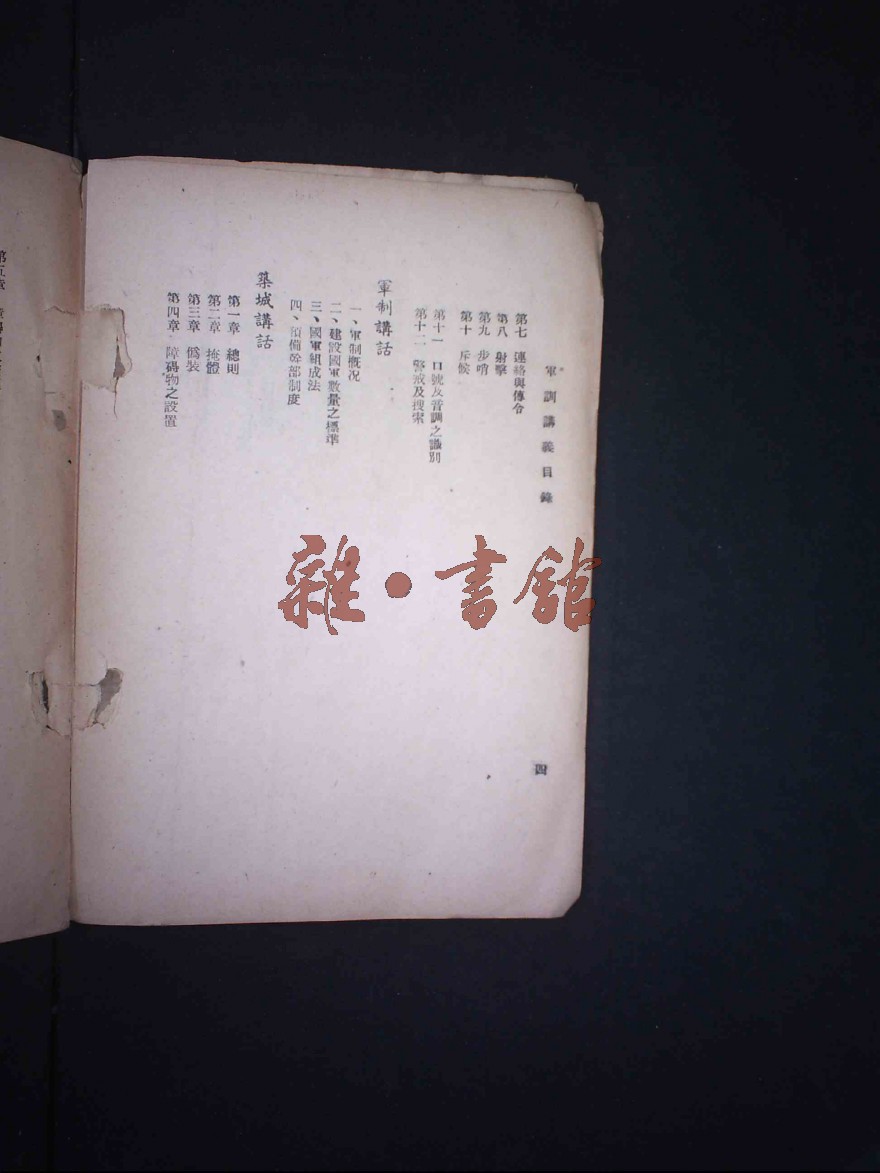 軍訓講義目錄
第七 連絡與傳令
第八 射擊
第九 步哨
第十 斥候
第十一 口號及音調之識別
第十二 警戒及搜索
軍制講話
一、軍制概況
二、建設國軍數量之標準
三、國軍組成法
四、預備幹部制度
築城講話
第一章 總則
第二章 掩體
第三章 偽裝
第四章 障碍物之設置
四
雜·書館
第五章